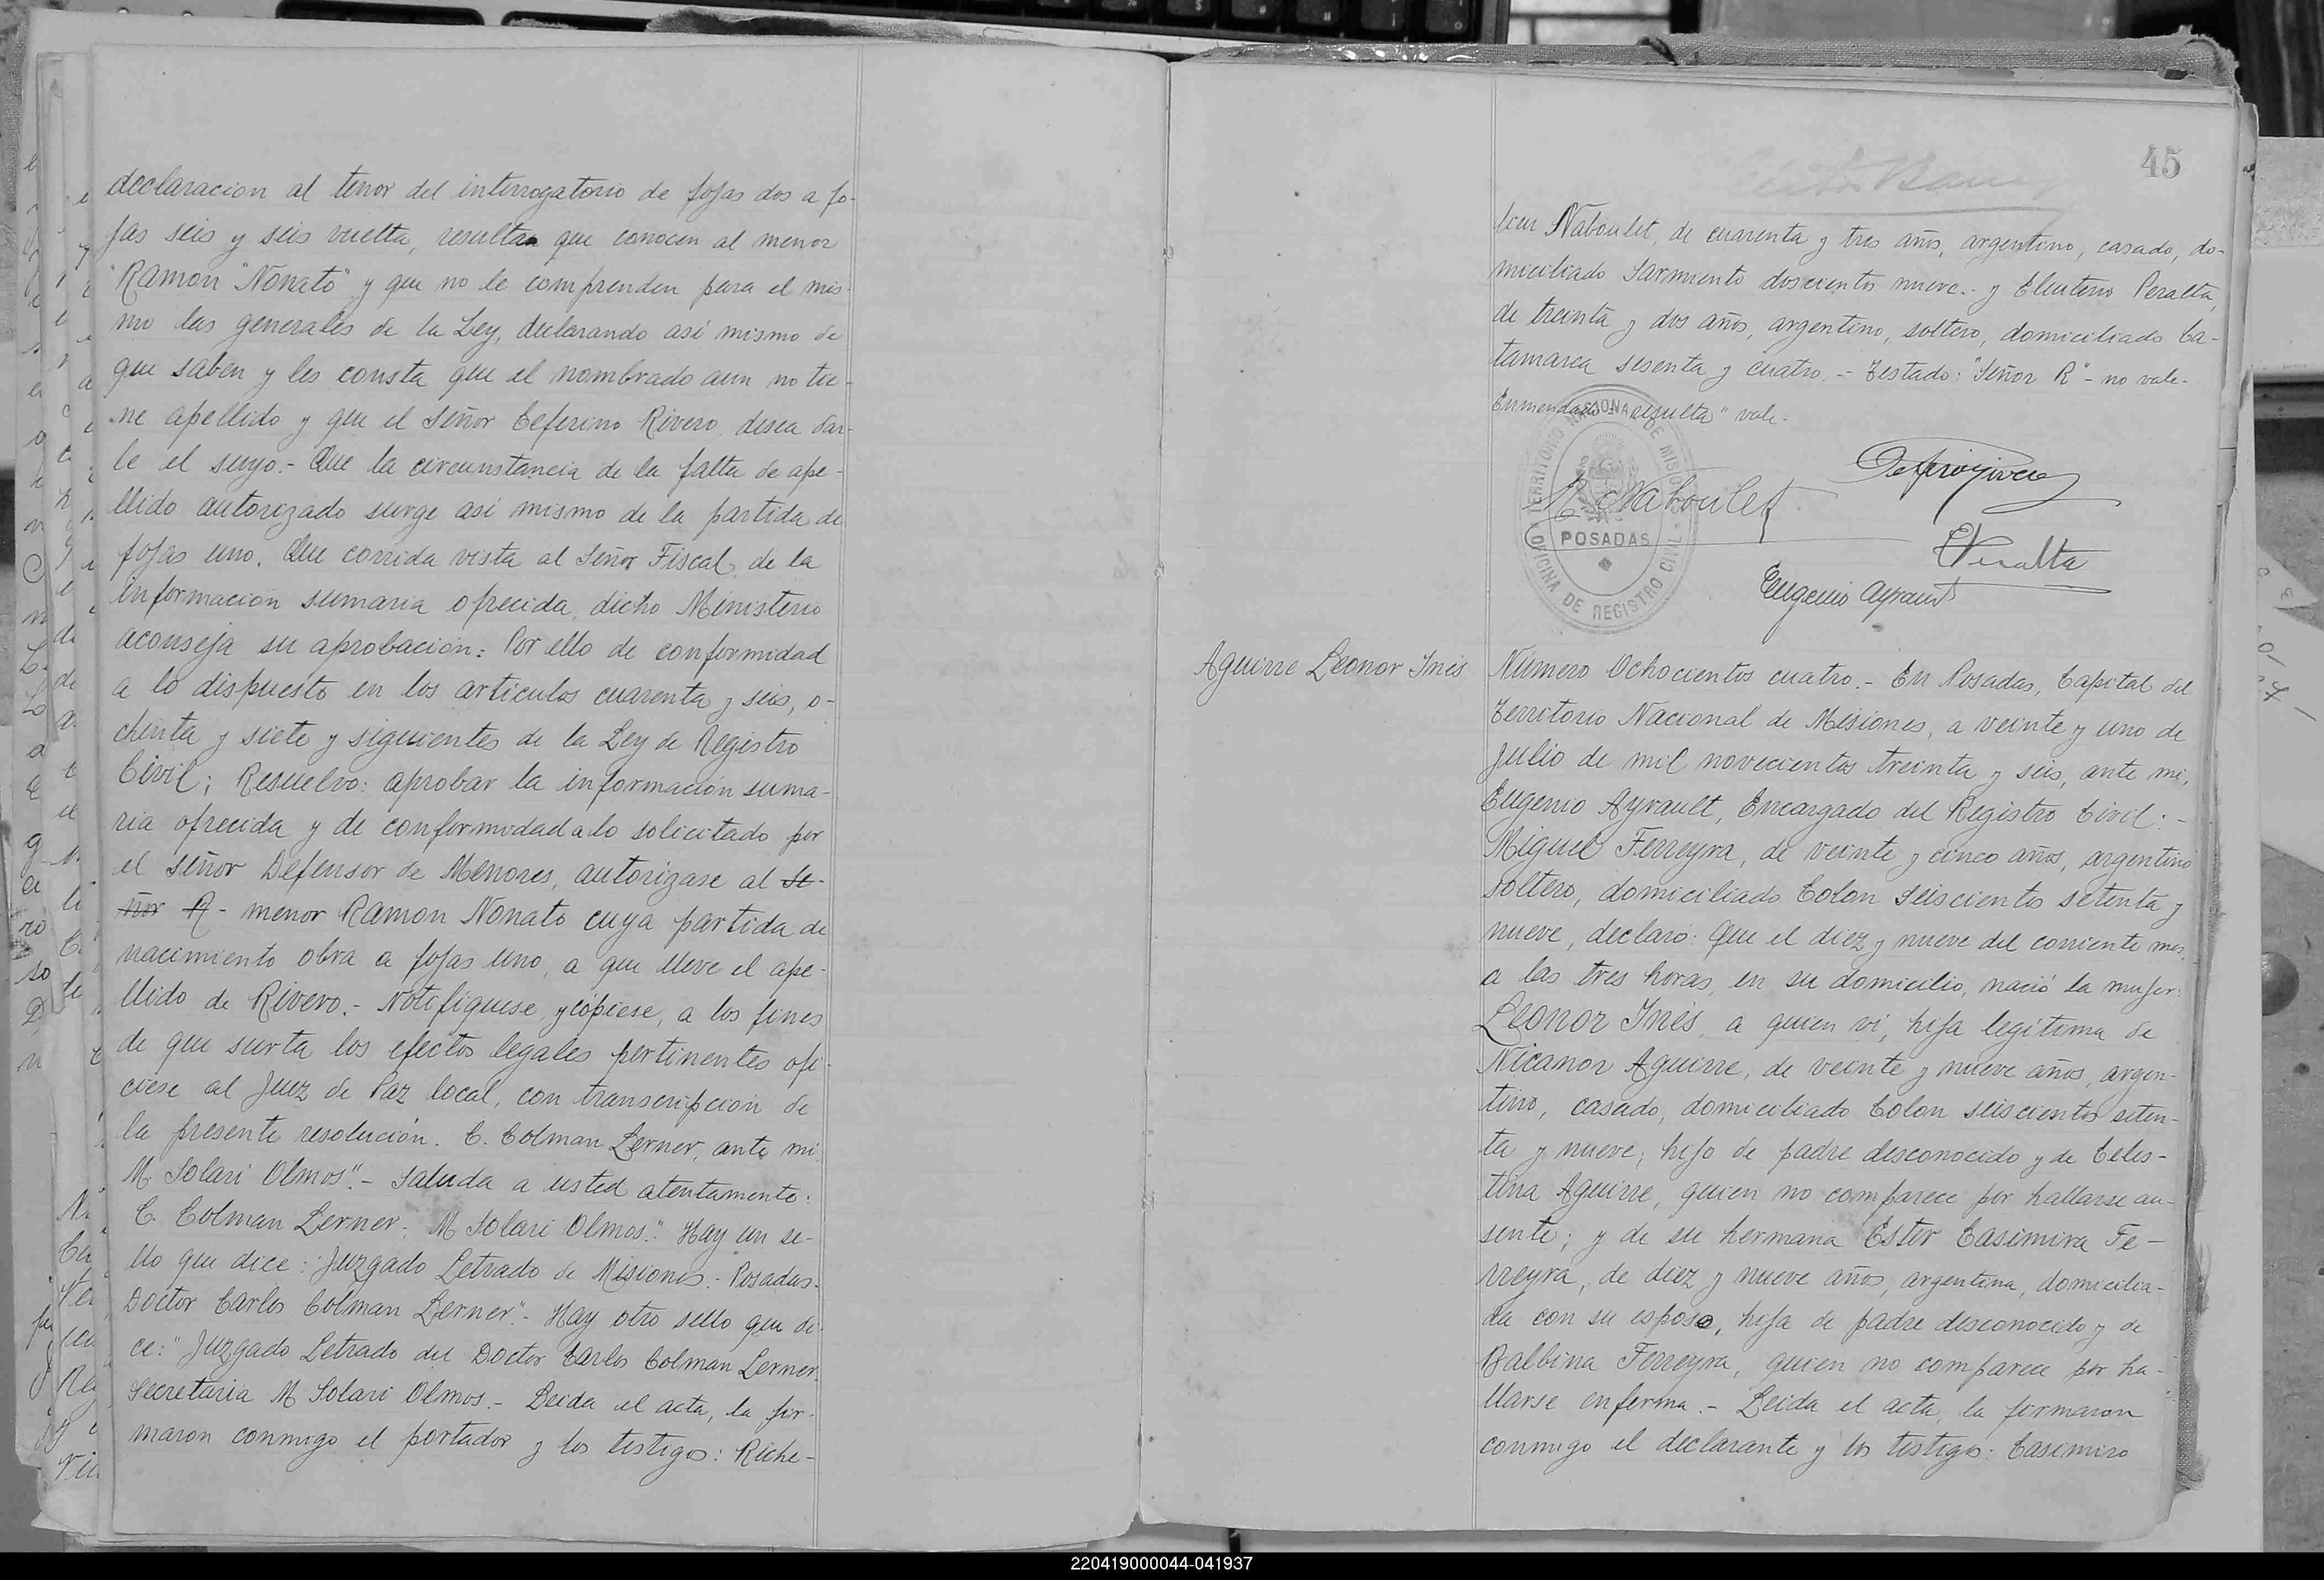 declaracion al tenor del interrogatorio de fojas dos a fo-
jas seis y seis vuelta, resulta que conocen al menor
"Ramon "Nonato" y que no le comprenden para el mis-
mo las generales de la Ley, declarando así mismo de
que saben y les consta que el nombrado aun no tie-
ne apellido y que el Señor Ceferino Rivero, desea dar-
le el suyo.- Que la circunstancia de la falta de ape-
llido autorizado surge así mismo de la partida de
fojas uno. Que corrida vista al Señor Fiscal, de la
información sumaria ofrecida, dicho Ministerio
aconseja su aprobación: Por ello de conformidad
a lo dispuesto en los articulos cuarenta y seis, o-
chenta y siete y siguientes de la Ley de Registro
Civil; Resuelvo: aprobar la información suma-
ria ofrecida y de conformidad a lo solicitado por
el señor Defensor de Menores, autorizase al se-
ñor R - menor Ramon Nonato cuya partida de
nacimiento obra a fojas uno, a que lleve el ape-
llido de Rivero.- Notifiquese, y cópiese, a los fines
de que surta los efectos legales pertinentes ofi-
ciese al Juez de Paz local, con transcripción de
la presente resolución. C. Colman Lerner, ante mi
M. Solari Olmos".- Saluda a usted atentamente:
C. Colman Lerner. M Solari Olmos." Hay un se-
llo que dice: Juzgado Letrado de Misiones.- Posadas.
Doctor Carlos Colman Lerner".- Hay otro sello que di-
ce: "Juzgado Letrado del Doctor Carlos Colman Lerner.
Secretaria M Solari Olmos.- Leida el acta, la fir-
maron conmigo el portador y los testigos: Riche-
45
lieu Naboulet, de cuarenta y tres años, argentino, casado, do-
miciliado Sarmiento doscientos nueve.- y Eleuterio Peralta,
de treinta y dos años, argentino, soltero, domiciliado Ca-
tamarca sesenta y cuatro.- Testado: "Señor R"- no vale.
Enmendado "resulta" vale.
TERRITORIO NACIONAL DE MISIONES
POSADAS
OFICINA DE REGISTRO CIVIL
R Naboulet
E Peralta
Eugenio Ayrault
Aguirre Leonor Inés
Número Ochocientos cuatro.- En Posadas, Capital del
Territorio Nacional de Misiones, a veinte y uno de
Julio de mil novecientos treinta y seis, ante mi,
Eugenio Ayrault, Encargado del Registro Civil:-
Miguel Ferreyra, de veinte y cinco años, argentino
soltero, domiciliado Colon seiscientos setenta y
nueve, declaró: Que el diez y nueve del corriente mes,
a las tres horas, en su domicilio, nació la mujer:
Leonor Inés, a quien vi, hija legitima de
Nicanor Aguirre, de veinte y nueve años, argen-
tino, casado, domiciliado Colon seiscientos seten-
ta y nueve; hijo de padre desconocido y de Celes-
tina Aguirre, quien no comparece por hallarse au-
sente; y de su hermana Ester Casimira Fe-
rreyra, de diez y nueve años, argentina, domicilia-
da con su esposo, hija de padre desconocido y de
Balbina Ferreyra, quien no comparece por ha-
llarse enferma.- Leida el acta, la firmaron
conmigo el declarante y los testigos: Casimiro
220419000044-041937